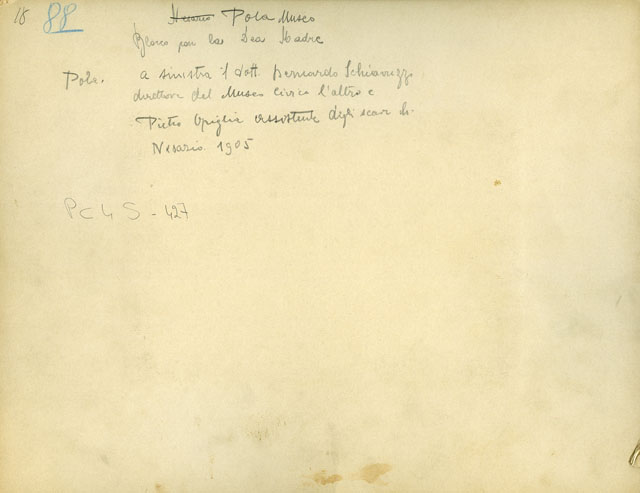 18 88 Nesazio Pola Museo
Blocco con la Dea Madre
Pola. a sinistra il dott. Bernardo Schiavuzzi
direttore del Museo civico l'altro è
Pietro Opiglia assistente degli scavi di
Nesazio 1905
PC4S-427